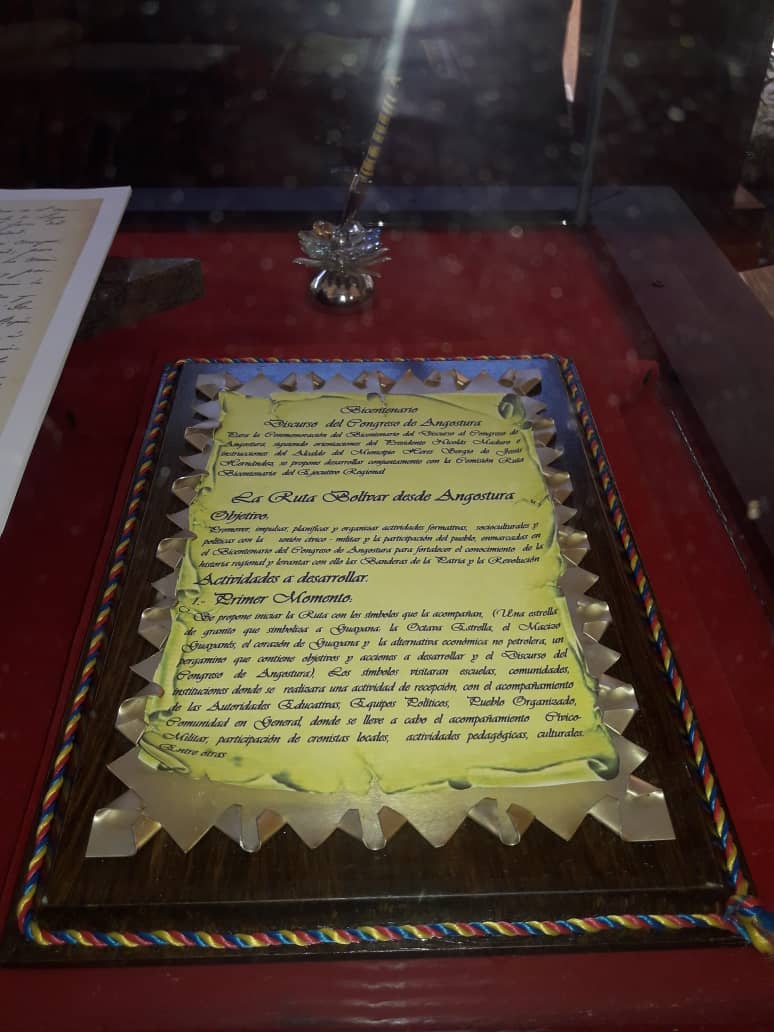 Bicentenario
Discurso del Congreso de Angostura
Para la Conmemoración del Bicentenario del Discurso al Congreso de
Angostura, siguiendo orientaciones del Presidente Nicolás Maduro e
instrucciones del Alcalde del Municipio Heres Sergio de Jesús
Hernández, se propone desarrollar conjuntamente con la Comisión Ruta
Bicentenaria del Ejecutivo Regional
La Ruta Bolívar desde Angostura
Objetivo:
Promover, impulsar, planificar y organizar actividades formativas, socioculturales y
políticas con la unión cívico - militar y la participación del pueblo, enmarcadas en
el Bicentenario del Congreso de Angostura para fortalecer el conocimiento de la
historia regional y levantar con ello las Banderas de la Patria y la Revolución
Actividades a desarrollar.
1.- Primer Momento:
Se propone iniciar la Ruta con los símbolos que la acompañan, (Una estrella
de granito que simboliza a Guayana: la Octava Estrella, el Macizo
Guayanés, el corazón de Guayana y la alternativa económica no petrolera, un
pergamino que contiene objetivos y acciones a desarrollar y el Discurso del
Congreso de Angostura), Los símbolos visitaran escuelas, comunidades,
instituciones donde se realizara una actividad de recepción, con el acompañamiento
de las Autoridades Educativas, Equipos Políticos, Pueblo Organizado,
Comunidad en General, donde se lleve a cabo el acompañamiento Cívico-
Militar, participación de cronistas locales, actividades pedagógicas, culturales.
Entre otras